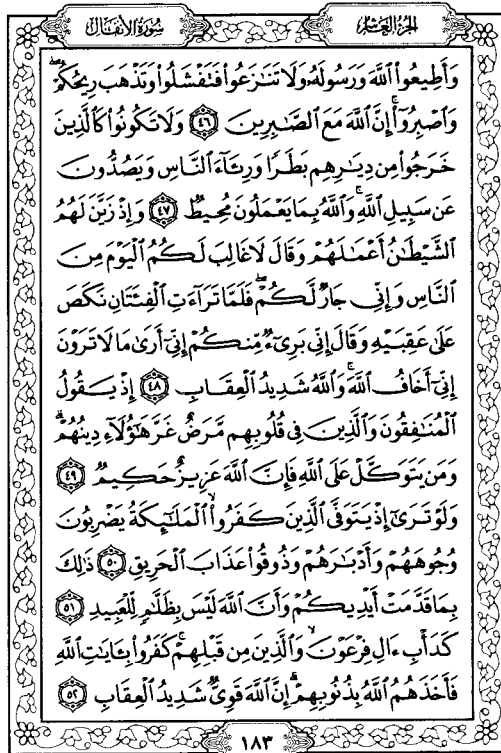 سُورَةُ الأَنفَال
الجُزءُ العَاشِر
وَأَطِيعُوا۟ ٱللَّهَ وَرَسُولَهُۥ وَلَا تَنَٰزَعُوا۟ فَتَفْشَلُوا۟ وَتَذْهَبَ رِيحُكُمْ ۖ
وَٱصْبِرُوٓا۟ ۚ إِنَّ ٱللَّهَ مَعَ ٱلصَّٰبِرِينَ ٤٦ وَلَا تَكُونُوا۟ كَٱلَّذِينَ
خَرَجُوا۟ مِن دِيَٰرِهِم بَطَرًا وَرِئَآءَ ٱلنَّاسِ وَيَصُدُّونَ
عَن سَبِيلِ ٱللَّهِ ۚ وَٱللَّهُ بِمَا يَعْمَلُونَ مُحِيطٌ ٤٧ وَإِذْ زَيَّنَ لَهُمُ
ٱلشَّيْطَٰنُ أَعْمَٰلَهُمْ وَقَالَ لَا غَالِبَ لَكُمُ ٱلْيَوْمَ مِنَ
ٱلنَّاسِ وَإِنِّى جَارٌ لَّكُمْ ۖ فَلَمَّا تَرَآءَتِ ٱلْفِئَتَانِ نَكَصَ
عَلَىٰ عَقِبَيْهِ وَقَالَ إِنِّى بَرِىٓءٌ مِّنكُمْ إِنِّىٓ أَرَىٰ مَا لَا تَرَوْنَ
إِنِّىٓ أَخَافُ ٱللَّهَ ۚ وَٱللَّهُ شَدِيدُ ٱلْعِقَابِ ٤٨ إِذْ يَقُولُ
ٱلْمُنَٰفِقُونَ وَٱلَّذِينَ فِى قُلُوبِهِم مَّرَضٌ غَرَّ هَٰٓؤُلَآءِ دِينُهُمْ ۗ
وَمَن يَتَوَكَّلْ عَلَى ٱللَّهِ فَإِنَّ ٱللَّهَ عَزِيزٌ حَكِيمٌ ٤٩
وَلَوْ تَرَىٰٓ إِذْ يَتَوَفَّى ٱلَّذِينَ كَفَرُوا۟ ۙ ٱلْمَلَٰٓئِكَةُ يَضْرِبُونَ
وُجُوهَهُمْ وَأَدْبَٰرَهُمْ وَذُوقُوا۟ عَذَابَ ٱلْحَرِيقِ ٥٠ ذَٰلِكَ
بِمَا قَدَّمَتْ أَيْدِيكُمْ وَأَنَّ ٱللَّهَ لَيْسَ بِظَلَّٰمٍ لِّلْعَبِيدِ ٥١
كَدَأْبِ ءَالِ فِرْعَوْنَ ۙ وَٱلَّذِينَ مِن قَبْلِهِمْ ۚ كَفَرُوا۟ بِـَٔايَٰتِ ٱللَّهِ
فَأَخَذَهُمُ ٱللَّهُ بِذُنُوبِهِمْ ۗ إِنَّ ٱللَّهَ قَوِىٌّ شَدِيدُ ٱلْعِقَابِ ٥٢
١٨٣